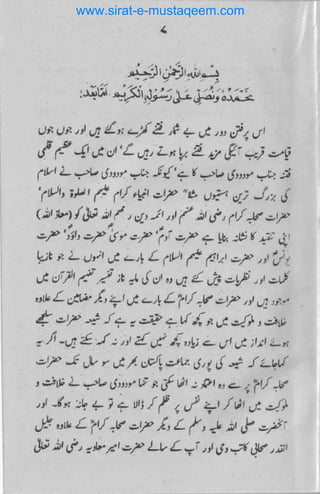 www.sirat-e-mustaqeem.com
۷
بسم الله الرحمن الرحیم
نحمده ونصلی علی رسوله الکریم امابعد!
اس پرفتن دور میں بے شمار فتنے کھڑے ہوگئے ہیں اور جوں جوں
قیامت قریب آئیگی مزید فتنے برپا ہوتے رہیں گے' ان میں ایک عظیم قلمی
فتنہ جناب مودودی صاحب کا ہے' کیونکہ جناب مودودی صاحب نے اسلام
کی بزرگ ترین ہستیوں مثلا" حضرات انبیاء کرام علیہم الصلوۃ والسلام'
حضرات صحابہ کرام رضی اللہ عنہم اور ائمہ دین رحمہم اللہ تعالی کو (معاذ اللہ)
اپنی تنقید کا نشانہ بنایا ہے حضرت آدم' حضرت موسیٰ' حضرت داؤد' حضرت
یونس اور حضرت ابراہیم علیہم السلام کے بارے میں انہوں نے جو نازیبا
کلمات اور نظریات پیش کئے ہیں وہ ان کی مایہ ناز تفسیر تفہیم القرآن میں
موجود ہیں اور حضرات صحابہ کرام کے بارے میں اپنے دیگر مضامین کے علاوہ
خلافت و ملوکیت میں جو کچھ کہا ہے یہ حقیقت ہے کہ شیعہ حضرات سلجھے
ہوئے انداز میں اس سے زیادہ کچھ نہیں کہتے اور نہ کہہ سکتے ہیں۔ اگر یہ
کہاجائے کہ شیعہ کی پوری جماعت پاکستان بھر میں سو سال تک حضرات
صحابہ کرام پر وہ بے اعتماد نہ اٹھا سکتی جو تنہا مودودی صاحب نے خلافت و
ملوکیت میں اٹھا کر اپنے نفس پر ظلم کر ڈالا ہے تو بے جانہ ہو گا۔ اور
آنحضرت صلی اللہ علیہ وسلم کے دیگر حضرات صحابہ کرام کے علاوہ جلیل
القدر صحابی کاتب وحی اور آپ کے سالے حضرت امیر معاویہ رضی اللہ تعالیٰ